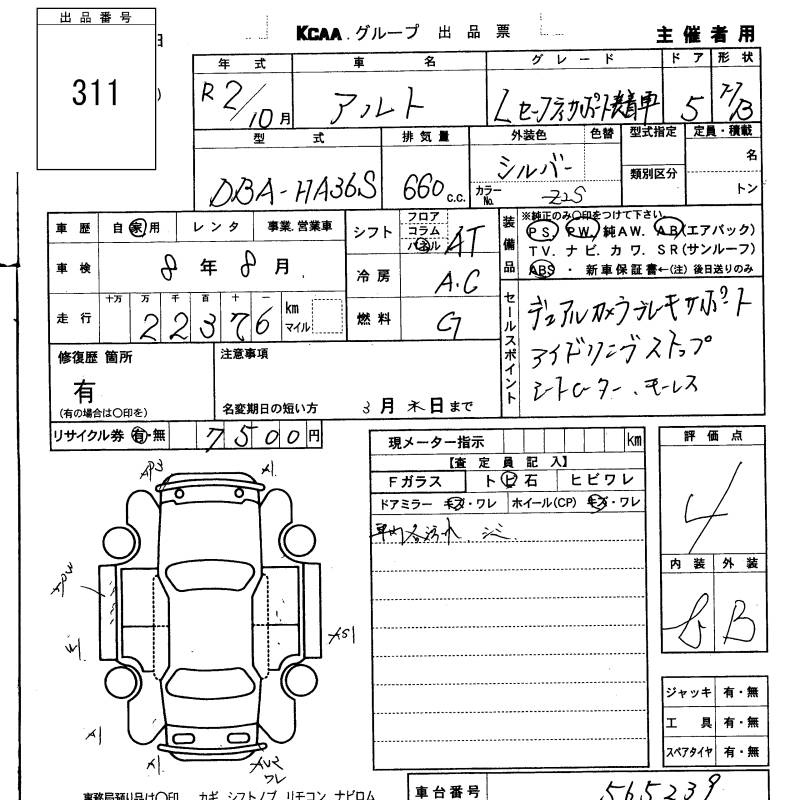 出品番号
311
KCAA.グループ 出品票
主催者用
年式 車名 グレード ドア 形状
R2/10月 アルト Lセーフティサポート装着車 5 F/B
型式 排気量 外装色 色替 型式指定 定員・積載
DBA-HA36S 660 c.c. シルバー 名
カラーNo. Z2S 類別区分 トン
車歴 自家用 レンタ 事業.営業車
シフト フロア コラム パネル AT
装備品 ※純正のみ〇印をつけて下さい。
PS. PW. 純AW. AB(エアバック)
TV. ナビ. カワ. SR(サンルーフ)
ABS ・ 新車保証書←(注) 後日送りのみ
車検 8年8月
冷房 A.C
走行 十万 万 千 百 十 一
22376 km マイル
燃料 G
セールスポイント
デュアルカメラブレーキサポート
アイドリングストップ
シートヒーター、キーレス
修復歴 箇所
有
(有の場合は〇印を)
注意事項
名変期日の短い方 3月末日まで
リサイクル券 有・無 7500円
現メーター指示 km
【査定員記入】
Fガラス トビ石 ヒビワレ
ドアミラー キズ・ワレ ホイール(CP) キズ・ワレ
車内汚れ、シミ
評価点
4
内装 外装
b B
ジャッキ 有・無
工具 有・無
スペアタイヤ 有・無
AP3 A1
APW
AS1
A1 A1
ワレ
事務局預り品は〇印 カギ シフトノブ リモコン ナビロム
車台番号 565239